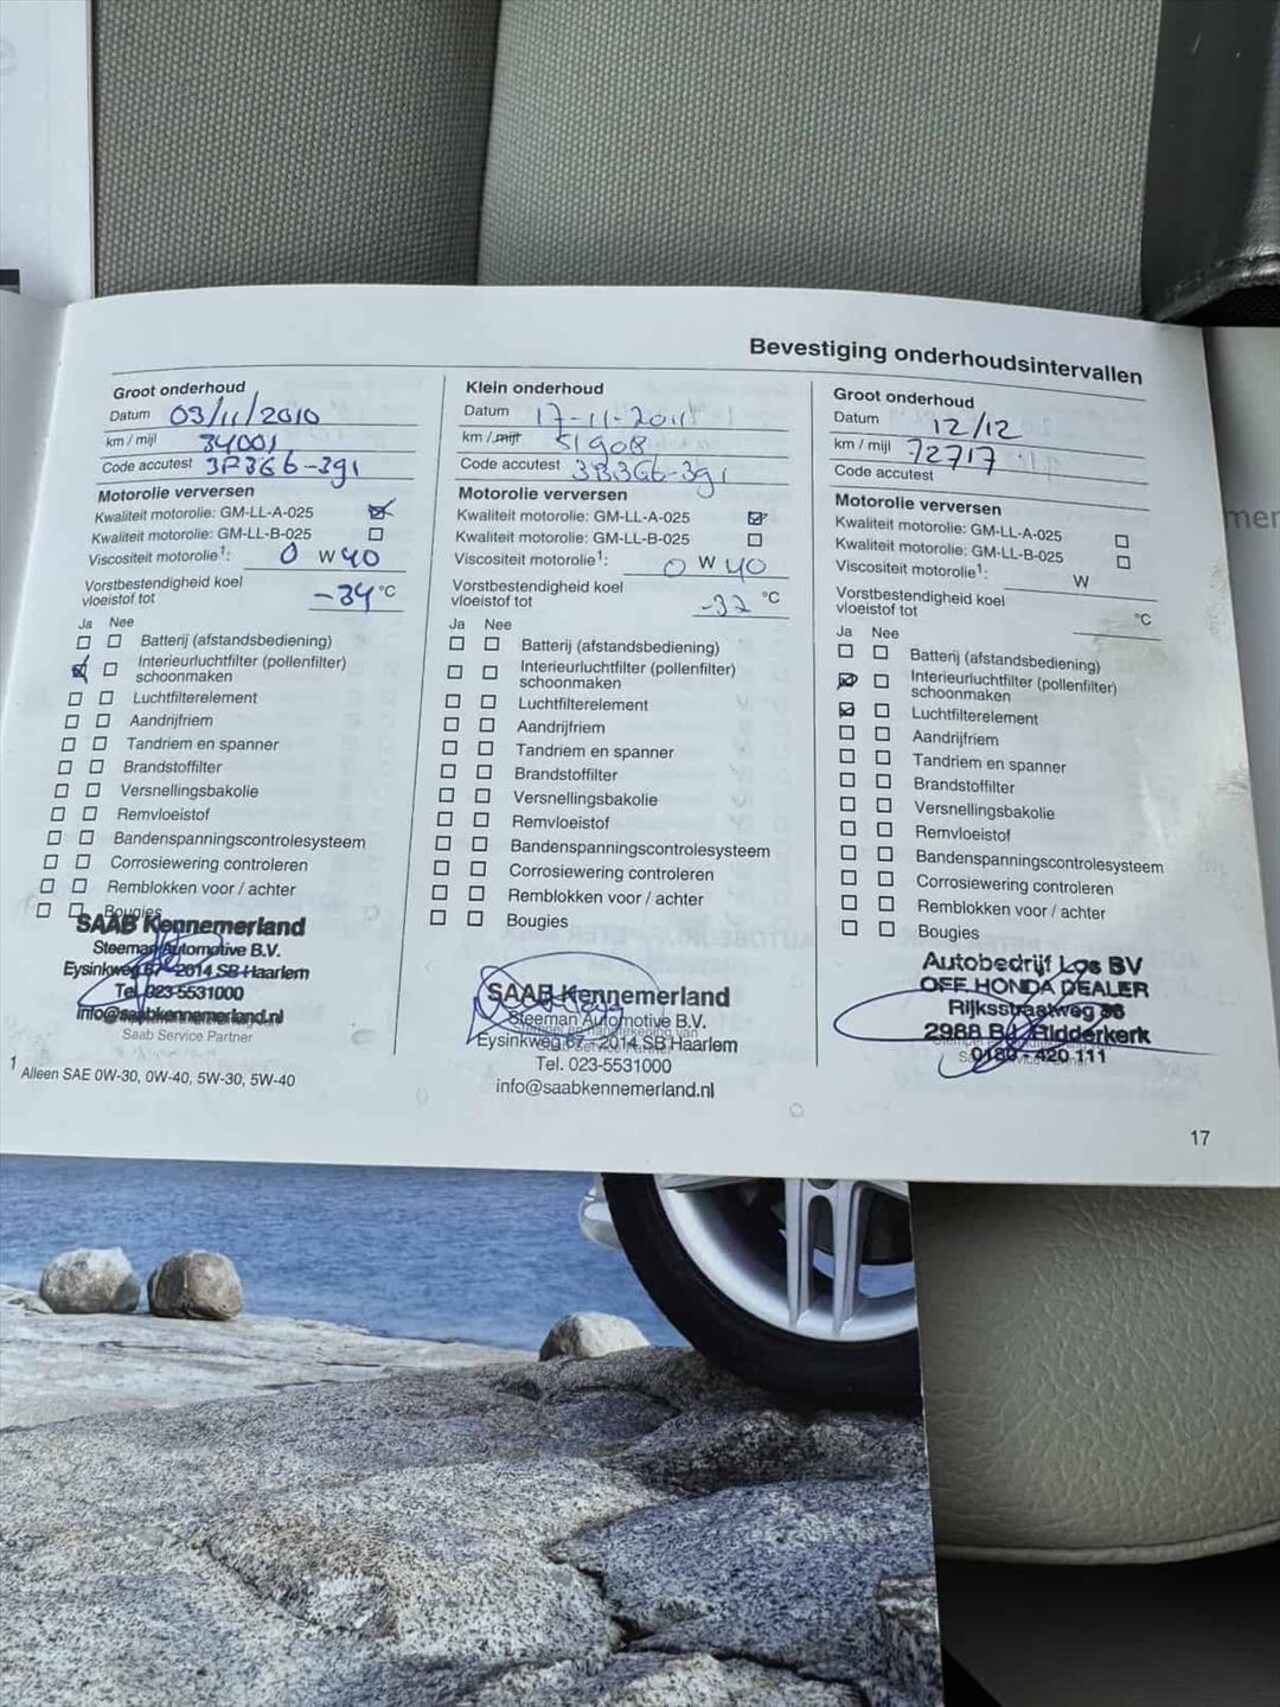 Bevestiging onderhoudsintervallen
Groot onderhoud
Datum 03/11/2010
km / mijl 34001
Code accutest 3P3G6-3g1
Motorolie verversen
Kwaliteit motorolie: GM-LL-A-025
Kwaliteit motorolie: GM-LL-B-025
Viscositeit motorolie1: 0 W 40
Vorstbestendigheid koel
vloeistof tot -34 °C
Ja Nee
Batterij (afstandsbediening)
Interieurluchtfilter (pollenfilter)
schoonmaken
Luchtfilterelement
Aandrijfriem
Tandriem en spanner
Brandstoffilter
Versnellingsbakolie
Remvloeistof
Bandenspanningscontrolesysteem
Corrosiewering controleren
Remblokken voor / achter
Bougies
SAAB Kennemerland
Steeman Automotive B.V.
Eysinkweg 67 - 2014 SB Haarlem
Tel. 023-5531000
info@saabkennemerland.nl
Saab Service Partner
1 Alleen SAE 0W-30, 0W-40, 5W-30, 5W-40
Klein onderhoud
Datum 17-11-2011
km / mijl 51908
Code accutest 3B3G6-3g1
Motorolie verversen
Kwaliteit motorolie: GM-LL-A-025
Kwaliteit motorolie: GM-LL-B-025
Viscositeit motorolie1: 0 W 40
Vorstbestendigheid koel
vloeistof tot -32 °C
Ja Nee
Batterij (afstandsbediening)
Interieurluchtfilter (pollenfilter)
schoonmaken
Luchtfilterelement
Aandrijfriem
Tandriem en spanner
Brandstoffilter
Versnellingsbakolie
Remvloeistof
Bandenspanningscontrolesysteem
Corrosiewering controleren
Remblokken voor / achter
Bougies
SAAB Kennemerland
Steeman Automotive B.V.
Eysinkweg 67 - 2014 SB Haarlem
Tel. 023-5531000
info@saabkennemerland.nl
Groot onderhoud
Datum 12/12
km / mijl 72717
Code accutest
Motorolie verversen
Kwaliteit motorolie: GM-LL-A-025
Kwaliteit motorolie: GM-LL-B-025
Viscositeit motorolie1: W
Vorstbestendigheid koel
vloeistof tot °C
Ja Nee
Batterij (afstandsbediening)
Interieurluchtfilter (pollenfilter)
schoonmaken
Luchtfilterelement
Aandrijfriem
Tandriem en spanner
Brandstoffilter
Versnellingsbakolie
Remvloeistof
Bandenspanningscontrolesysteem
Corrosiewering controleren
Remblokken voor / achter
Bougies
Autobedrijf Los BV
OFF. HONDA DEALER
Rijksstraatweg 36
2988 BJ Ridderkerk
0180 - 420 111
17